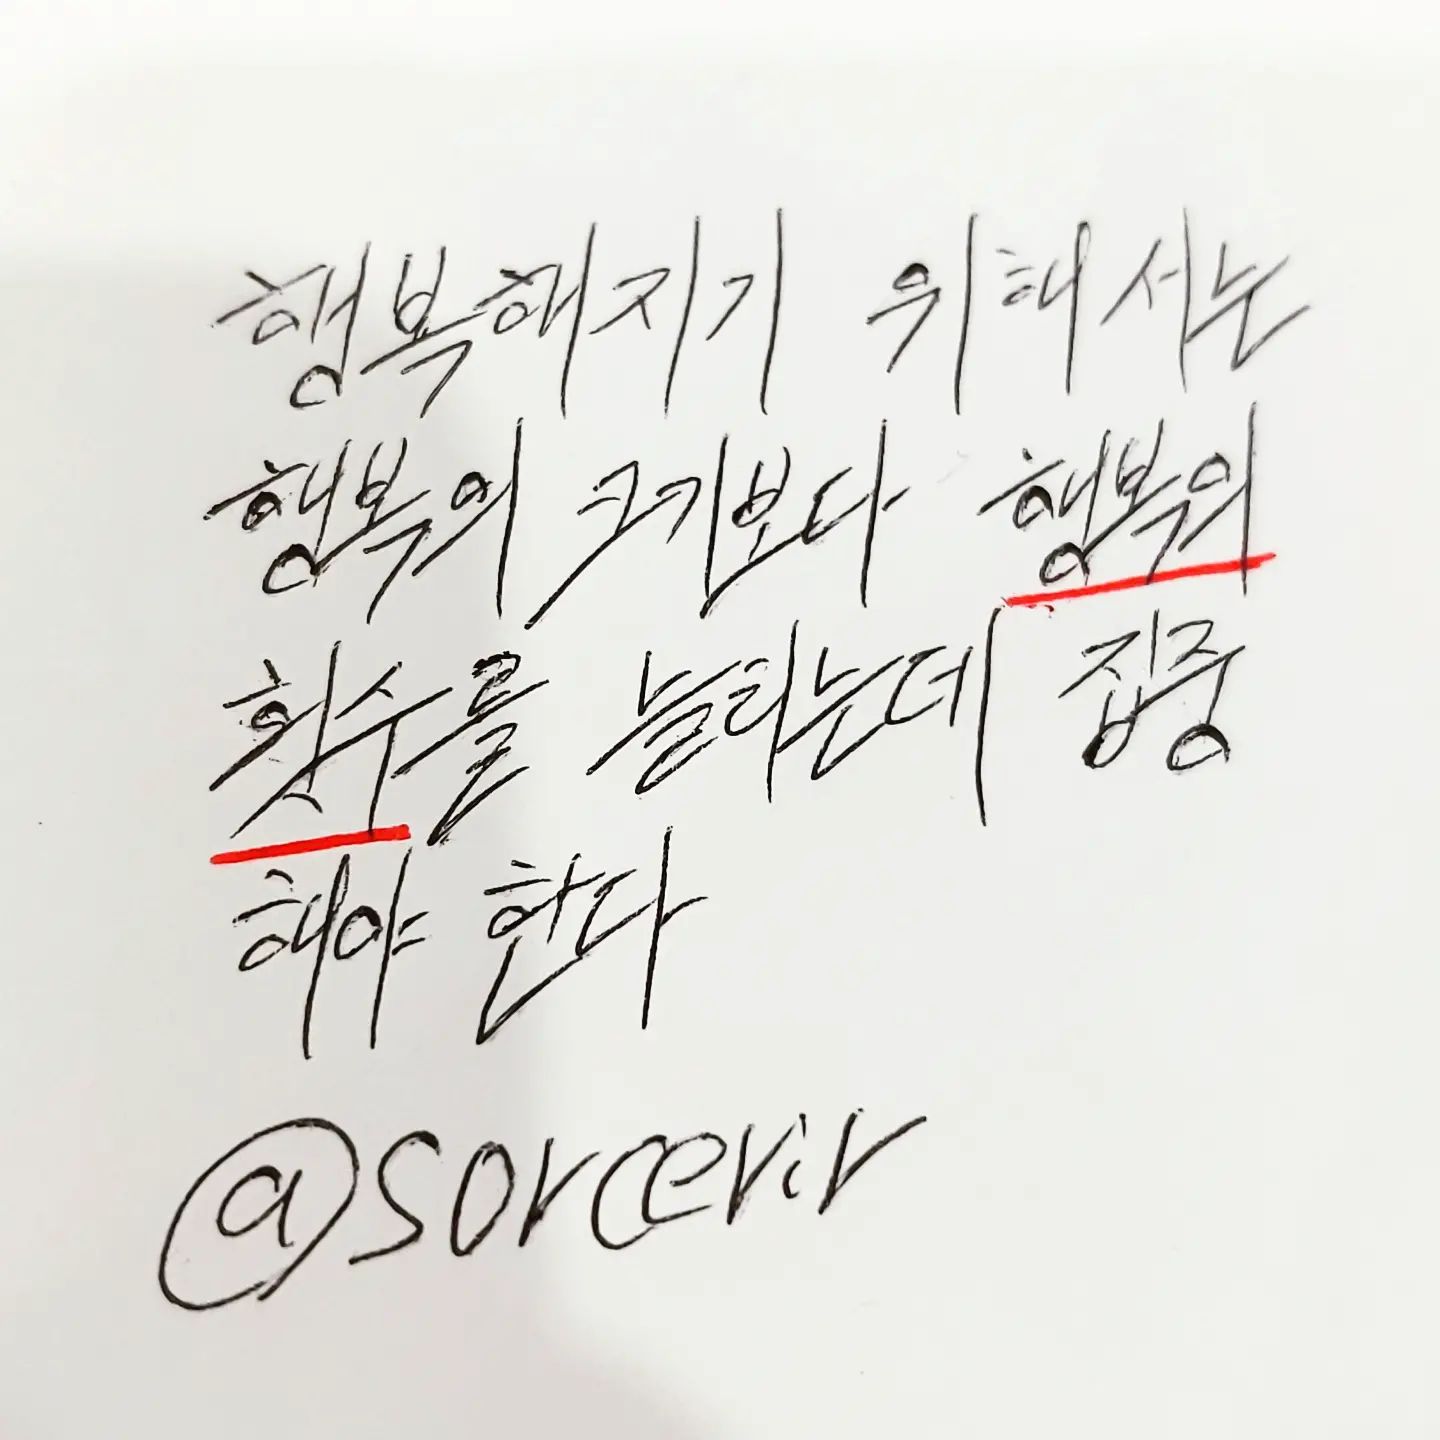 행복해지기 위해서는
행복의 크기보다 행복의
횟수를 늘리는데 집중
해야 한다
@sorcerir